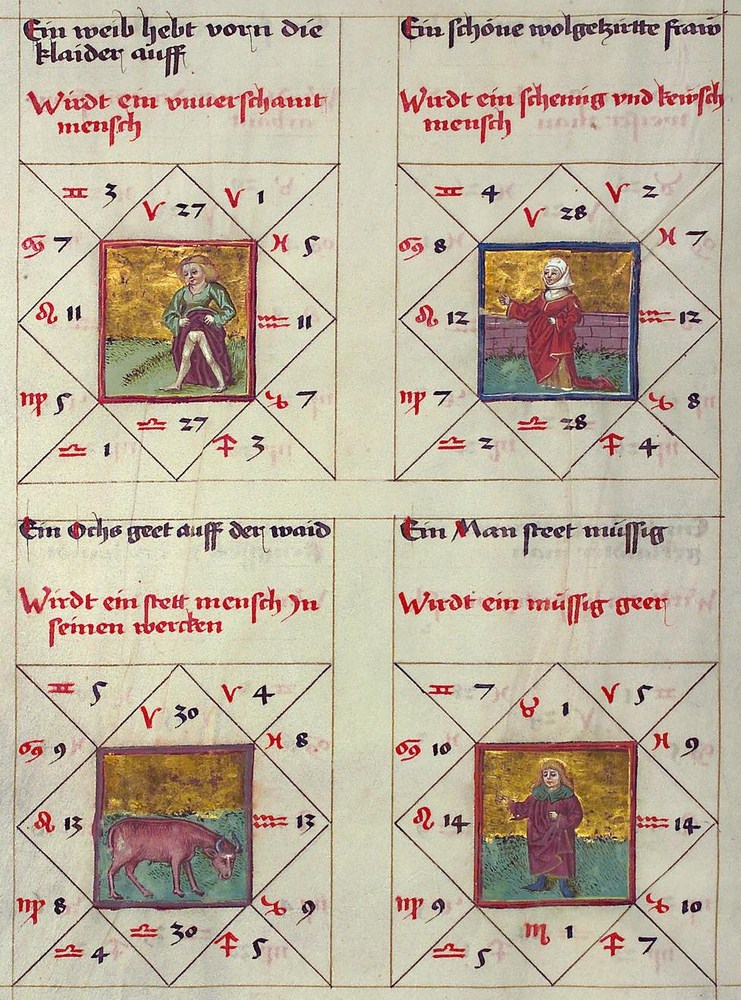 Ein weib hebt vorn die
klaider auff
Wirdt ein vnuerschamt
mensch
♊ 3 ♈ 27 ♈ 1
♋ 7 ♓ 5
♌ 11 ♒ 11
♍ 5 ♑ 7
♎ 1 ♎ 27 ♐ 3
Ein schöne wolgetzirtte fraw
Wirdt ein schemig vnd kewsch
mensch
♊ 4 ♈ 28 ♈ 2
♋ 8 ♓ 7
♌ 12 ♒ 12
♍ 7 ♑ 8
♎ 2 ♎ 28 ♐ 4
Ein Ochs geet auff der waid
Wirdt ein stett mensch Jn
seinen wercken
♊ 5 ♈ 30 ♈ 4
♋ 9 ♓ 8
♌ 13 ♒ 13
♍ 8 ♑ 9
♎ 4 ♎ 30 ♐ 5
Ein Man steet müssig
Wirdt ein müssig geer
♊ 7 ♉ 1 ♈ 5
♋ 10 ♓ 9
♌ 14 ♒ 14
♍ 9 ♑ 10
♎ 5 ♏ 1 ♐ 7